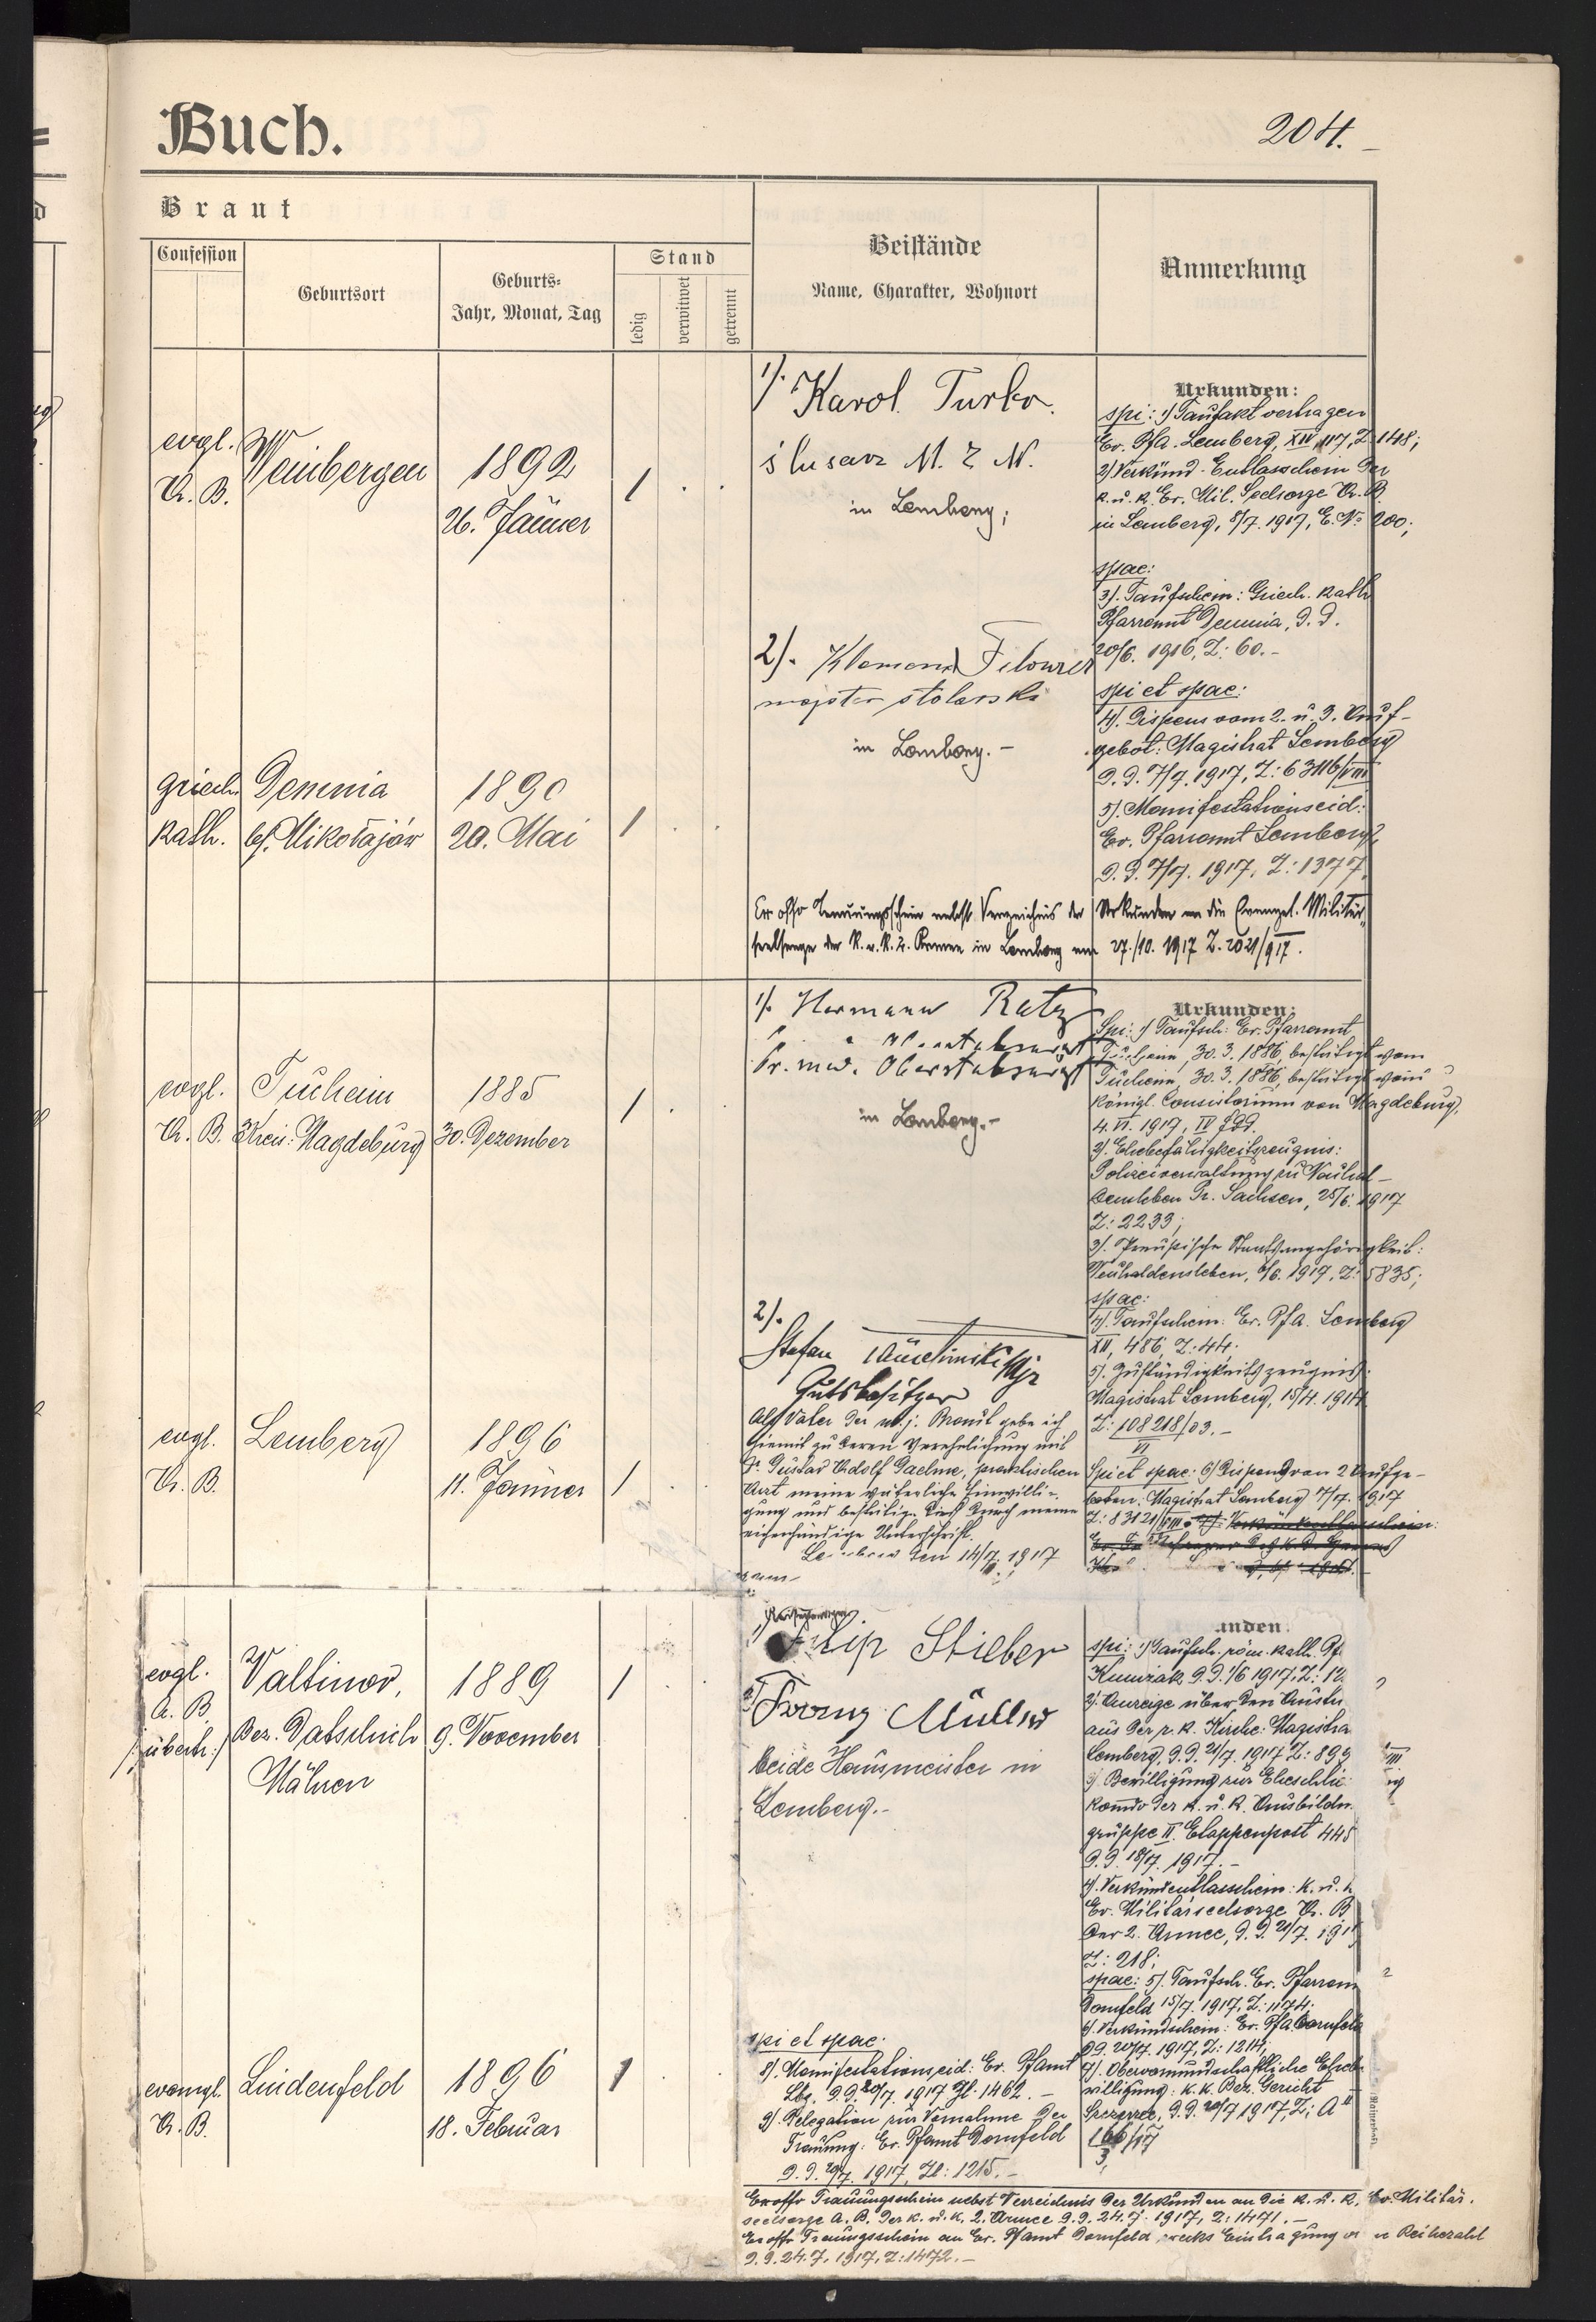 Buch.
204.
Braut
Confession
Geburtsort
Geburts-
Jahr, Monat, Tag
Stand
ledig
verwitwet
getrennt
Beistände
Name, Charakter, Wohnort
Anmerkung
evgl.
A. B.
Weinbergen
1892
26. Jänner
1
1). Karol Turko
ślusarz M. Z. N.
in Lemberg;
2). Klemens
majster stolarski
in Lemberg.-
Urkunden:
spi: 1) Taufakt vertragen
Ev. Pfa. Lemberg, XIV, 117, Z. 148;
2) Verkünd-Entlasschein der
k. u. k. Ev. Mil. Seelsorge A. B.
in Lemberg, 8/7. 1917, E. No 200;
spae:
3). Taufschein: Griech. kath
Pfarramt Demnia, d. d.
20/6. 1916, Z: 60.-
spi et spae:
4). Dispens vom 2. u. 3. Auf-
gebot: Magistrat Lemberg
d. d. 7/7. 1917, Z: 63116/VIII
5). Manifestationseid:
Ev. Pfarramt Lemberg,
d. d. 7/7. 1917, Z: 1377.
griech.
kath.
Demnia
b/. Mikołajów
1890
20. Mai
1
Ex offo Trauungsschein nebst Verzeichnis der Urkunden an die Evangel. Militär-
seelsorge der k. u. k. 2. Armee in Lemberg am 27./10. 1917 Z. 2021/917.
evgl.
A. B.
Tucheim
Kreis: Magdeburg
1885
30. Dezember
1
1). Hermann Ratz
Dr. med. Oberstabsarzt
in Lemberg.-
Urkunden:
Spi: 1) Taufsch: Ev. Pfarramt
Tucheim, 30. 3. 1886, bestätigt vom
königl. Consistorium von Magdeburg,
4. VI. 1917, IV
2). Ehebefähigkeitszeugnis:
Polizeiverwaltung zu Neuhal-
densleben Pr. Sachsen, 25/6. 1917
Z: 2233;
3). Preußische Staatsangehörigkeit:
Neuhaldensleben, 6/6. 1917, Z: 5835;
spae:
4). Taufschein: Ev. Pfa. Lemberg
XII, 486, Z: 44;
5). Zuständigkeitszeugnis:
Magistrat Lemberg, 15/4. 1914
Z: 108218/03.-
VI
Spi et spae: 6) Dispens von 2 Aufge-
boten: Magistrat Lemberg 17/7. 1917
Z: 83121/VIII
evgl.
A. B.
Lemberg
1896
11. Jänner
1
2).
Stefan
Gutsbesitzer
Als Vater der m. j. Braut gebe ich
hiemit zu deren Verehelichung mit
Dr. Gustav Adolf Daehne, praktischen
Arzt meine väterliche Einwilli-
gung und bestätige dies durch meine
eigenhändige Unterschrift.
Lemberg den 14/7. 1917
evgl.
A. B.
/: übertr. :/
Valtinov,
Bez. Datschitz
Mähren
1889
9. November
1
1) Filip Stieber
2) Franz Müller
beide Hausmeister in
Lemberg.-
unden:
spi: 1) Taufsch. röm. kath. Pf.
Kumžak d. d. 1/6 1917, Z: 12
2). Anzeige über den Austr.
aus der r. k. Kirche: Magistra
Lemberg, d. d. 21/7. 1917, Z: 899
3). Bewilligung zur Eheschlie
komdo der k. u. k. Ausbildn.
gruppe II. Etappenpost 445
d. d. 18/7. 1917.-
4). Verkündentlasschein: K. u. k
Ev. Militärseelsorge A. B
der 2. Armee, d. d. 21/7. 191
Z: 218;
spae: 5). Taufsch. Ev. Pfarram
Dornfeld 15/7. 1917, Z: 1174;
6). Verkündschein: Ev. Pfa. Dornfeld
d. d. 20/7. 1917, Z: 1214;
7). Obervormundschaftliche Ehebe
willigung: k. k. Bez. Gericht
Szczerzec, d. d. 20/7 1917, Z: A II
166/17
3
evangl.
A. B.
Lindenfeld
1896
18. Februar
1
spi et spae:
8). Manifestationseid: Ev. Pfamt
Lbg. d. d. 20/7. 1917 Zl. 1462.-
9). Delegation zur Vornahme der
Trauung: Ev. Pfamt Dornfeld
d. d. 20/7. 1917, Zl: 1215.-
Exoffo Trauungsschein nebst Verzeichnis der Urkunden an die k. u. k. Ev. Militär-
seelsorge A. B. der k. u. k. 2. Armee d. d. 24. 7. 1917, Z: 1471.-
Exoffo Trauungsschein an Ev. Pfamt Dornfeld zwecks Eintragung Reihezahl
d. d. 24. 7. 1917, Z: 1472.-